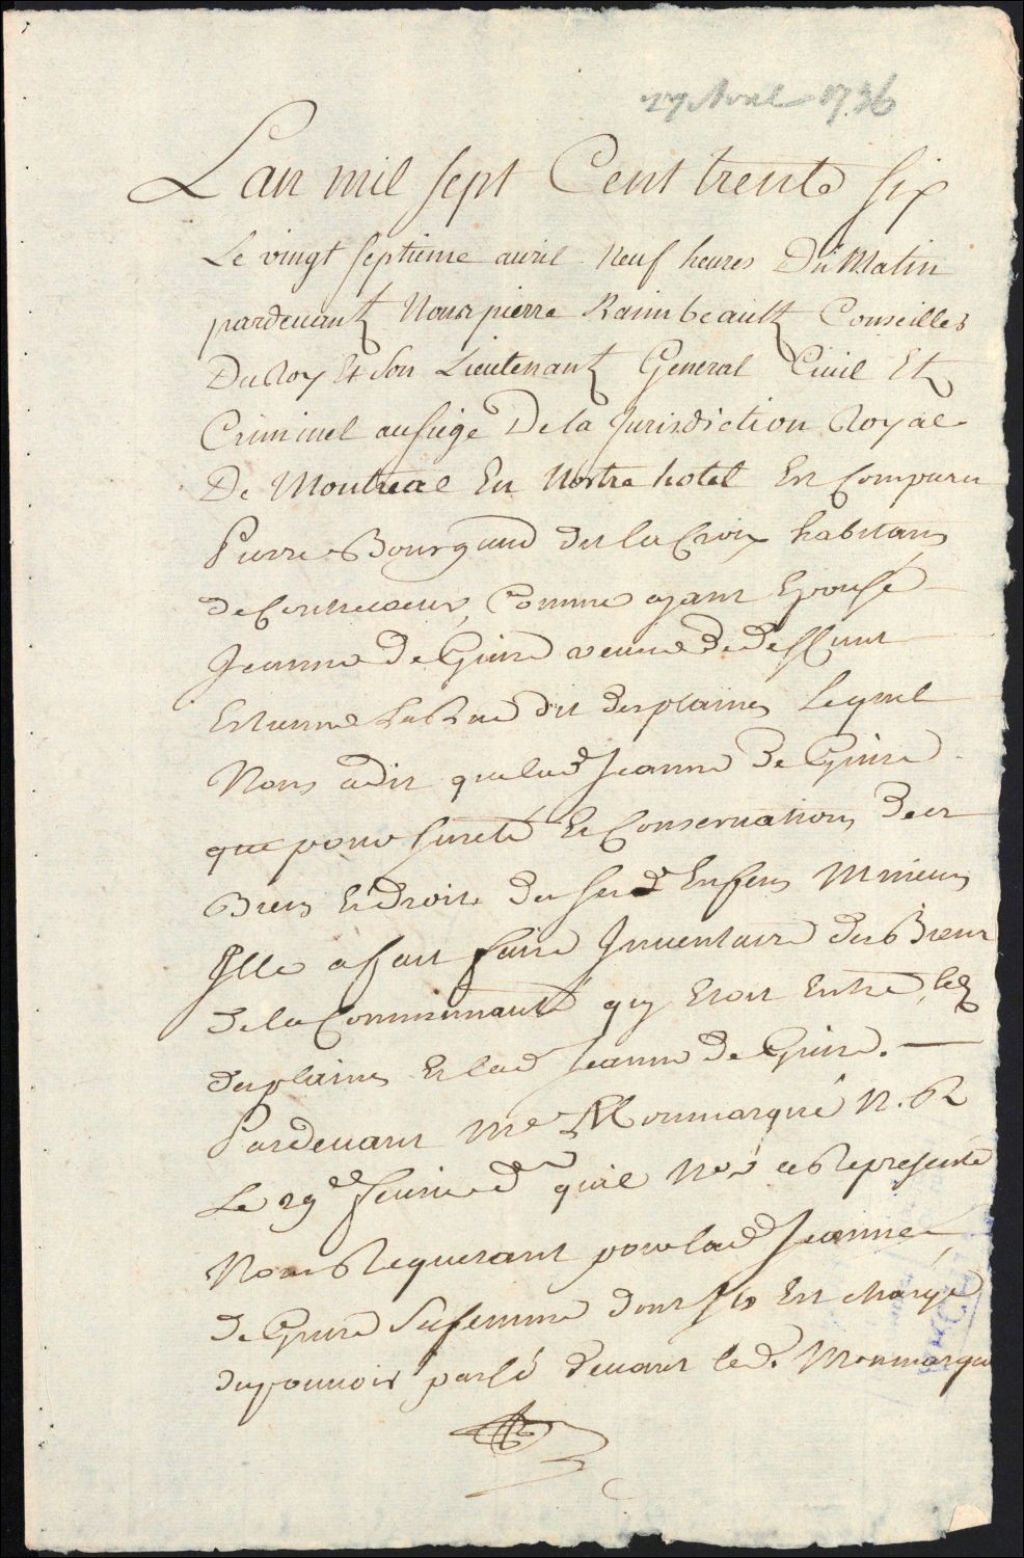 27 Avril 1736
Lan mil sept Cent trente six
Le vingt septieme auril Neuf heures Du Matin
pardeuant Nous pierre Raimbeault Conseiller
Du Roy Et Son Lieutenant General Ciuil Et
Criminel au siege De la Jurisdiction Royale
De Montreal En Nostre hotel Est Comparu
Pierre Bourgaud dit la Croix habitant
de Contrecoeur, Comme ayant Epousé
Jeanne De Guire veuue de deffunt
Estienne dit desplaines Lequel
Nous a dit que lad Jeanne De Guire
que pour sureté Et Conseruation des
Biens Et droits de sesd Enfens Mineurs
Elle a fait faire Inuentaire des Biens
de la Communauté qui Etoit Entre led
desplaines Et lad Jeanne De Guire.
Pardeuant Me Monmarqué N. R
Le 29e qu'il Nous a Representé
Nous Requerant pour lad Jeanne
de Guire sa femme dont Il Est chargé
du pouuoir passé deuant led. Monmarqué